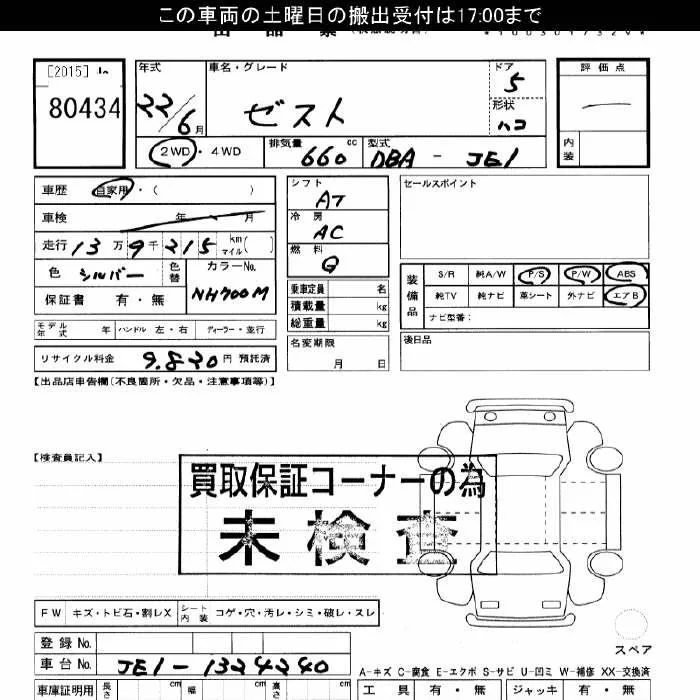 この車両の土曜日の搬出受付は17:00まで
[2015]
80434
年式
22/6月
車名・グレード
ゼスト
ドア
5
形状
ハコ
評価点
内装
2WD・4WD
排気量 660 cc
型式 DBA - JE1
車歴 自家用・( )
車検 年 月
走行 13万9千215 km マイル( )
色 シルバー 色替
カラーNo.
NH700M
保証書 有・無
モデル年式 年 ハンドル 左・右 ディーラー・並行
リサイクル料金 9.820円 預託済
シフト
AT
冷房
AC
燃料
G
乗車定員 名
積載量 kg
総重量 kg
名変期限
月 日
セールスポイント
装備品
S/R 純A/W P/S P/W ABS
純TV 純ナビ 革シート 外ナビ エアB
ナビ型番:
後日品
【出品店申告欄(不良箇所・欠品・注意事項等)】
【検査員記入】
買取保証コーナーの為
未検査
FW キズ・トビ石・割レX シート内装 コゲ・穴・汚レ・シミ・破レ・スレ
スペア
登録No.
車台No. JE1-1324240
A-キズ C-腐食 E-エクボ S-サビ U-凹ミ W-補修 XX-交換済
車庫証明用 長さ cm 幅 cm 高さ cm
工具 有・無 ジャッキ 有・無